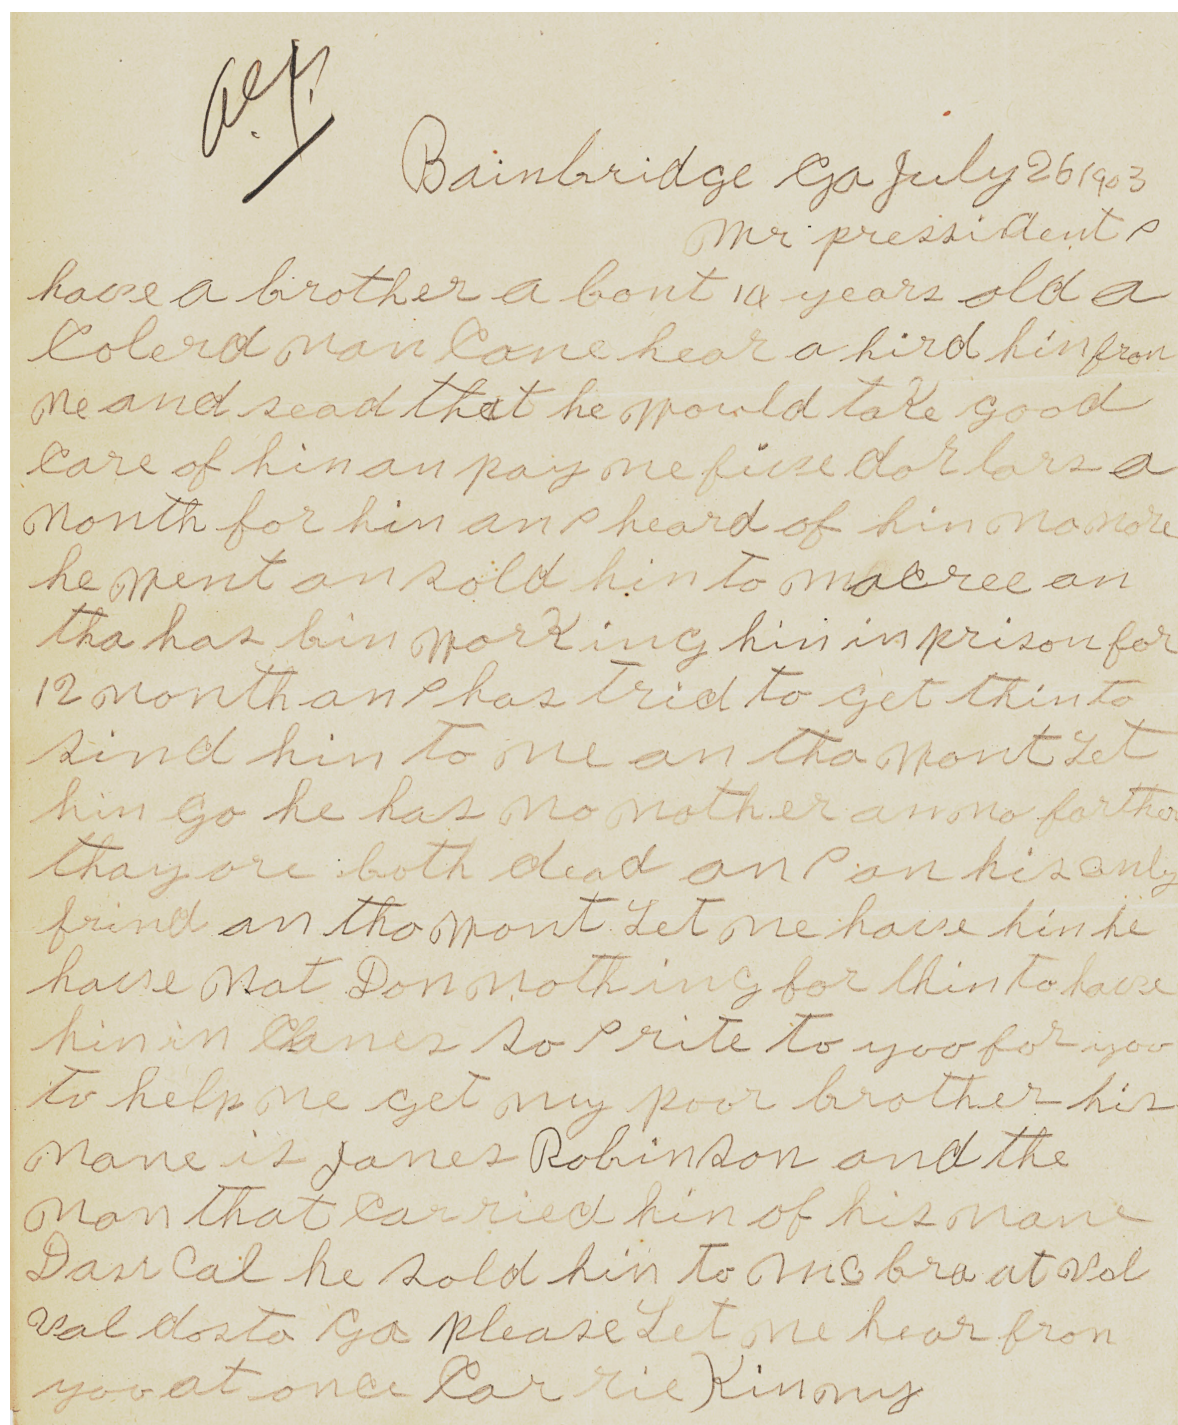 Bainbridge Ga July 26 1903
Mr. pressident I
have a brother a bout 14 years old a
Colerd man Came hear a hird him from
me and sead that he would take good
care of him an pay me five dorlars a
month for him an I heard of him no more
he went an sold him to macree an
tha has bin working him in prison for
12 month an I has trid to get thim to
sind him to me an tha wont Let
him go he has no mother an no farther
thay are both dead an I an his only
frind an tha wont Let me have him he
have not Don nothing for thim to have
him in Chanes so I rite to yoo for yoo
to help me get my poor brother his
name is James Robinson and the
man that carried him of his name
Cal he sold him to Mc bra at Val
Val dosta Ga please Let me hear from
yoo at once Car rie Kinmy